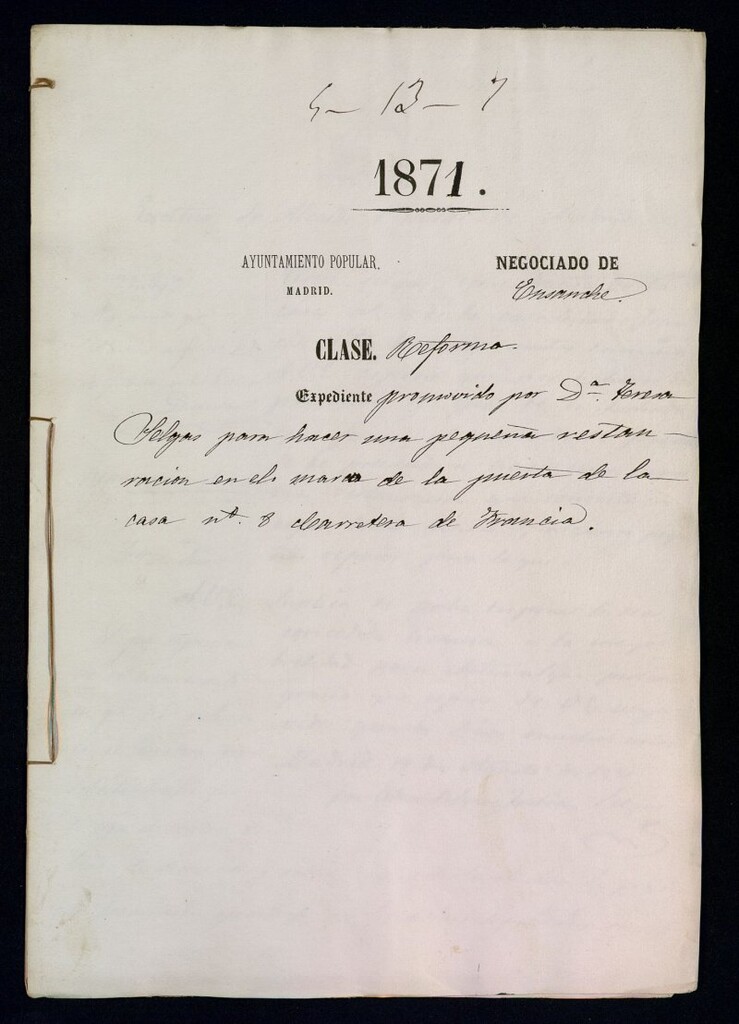 5 - 13 - 7
1871.
AYUNTAMIENTO POPULAR.
MADRID.
NEGOCIADO DE
Ensanche.
CLASE. Reforma.
Expediente promovido por Dª. Teresa
Selgas para hacer una pequeña restau-
racion en el marco de la puerta de la
casa nº. 8 Carretera de Francia.